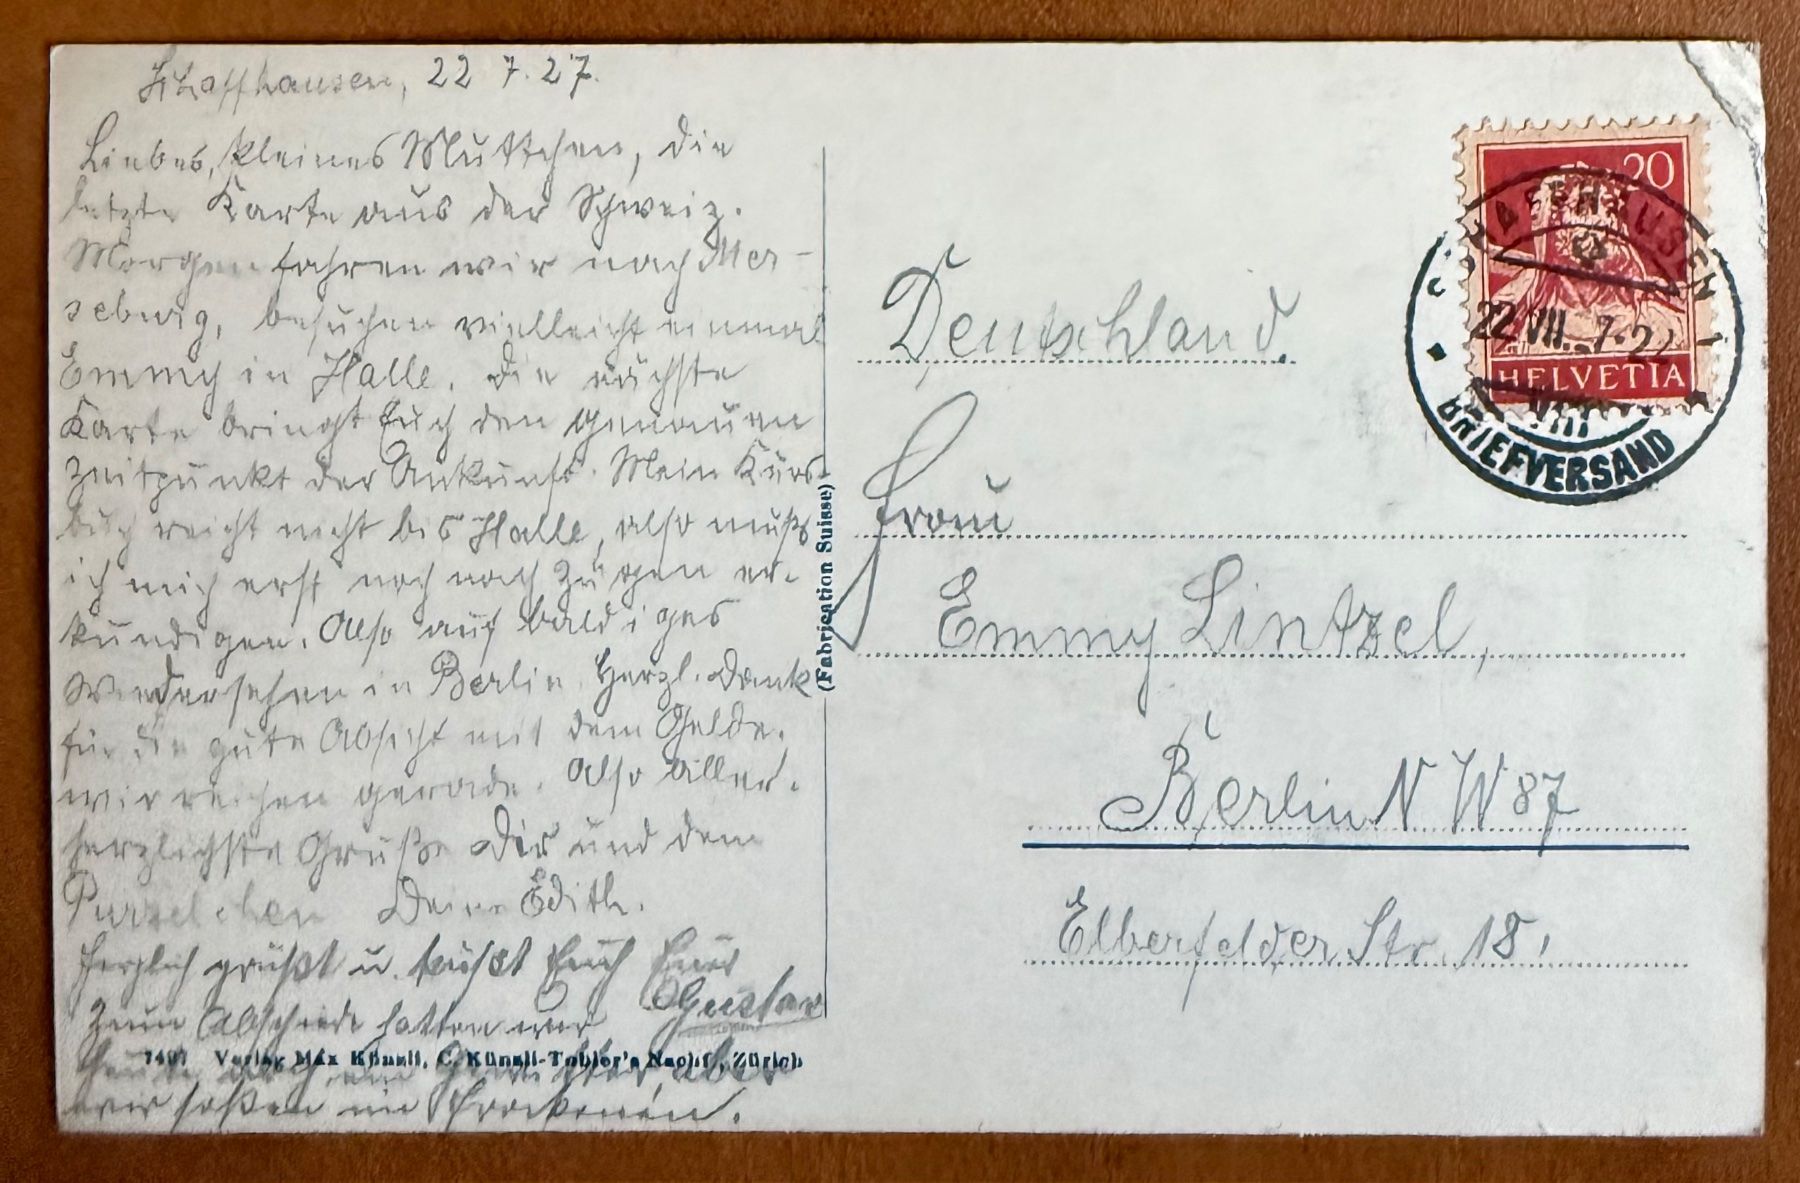 Schaffhausen, 22.7.27.
Liebes, kleines Muttchen, die
letzte Karte aus der Schweiz.
Morgen fahren wir nach Mer-
seburg, besuchen vielleicht einmal
Emmy in Halle. Die nächste
Karte bringt Euch den genauen
Zeitpunkt der Ankunft. Mein Kurs-
buch reicht nicht bis Halle, also muß
ich mich erst noch nach Zügen er-
kundigen. Also auf baldiges
Wiedersehen in Berlin. Herzl. Dank
für die gute Absicht mit dem Gelde.
wir reichen gerade. Also aller-
herzlichste Grüße Dir und dem
Purzelchen Deine Edith.
Herzlich grüßt u. küßt Euch Euer
Gustav
Zum Abschiede hatten wir
heute noch ein Gewitter aber
wir saßen im Trockenen.
7497 Verlag Max Künzli, C. Künzli-Tobler's Nachf., Zürich
(Fabrication Suisse)
20
HELVETIA
SCHAFFHAUSEN 1
22.VII.27-
VIII
BRIEFVERSAND
Deutschland.
Frau
Emmy Lintzel,
Berlin NW 87
Elberfelder Str. 18.